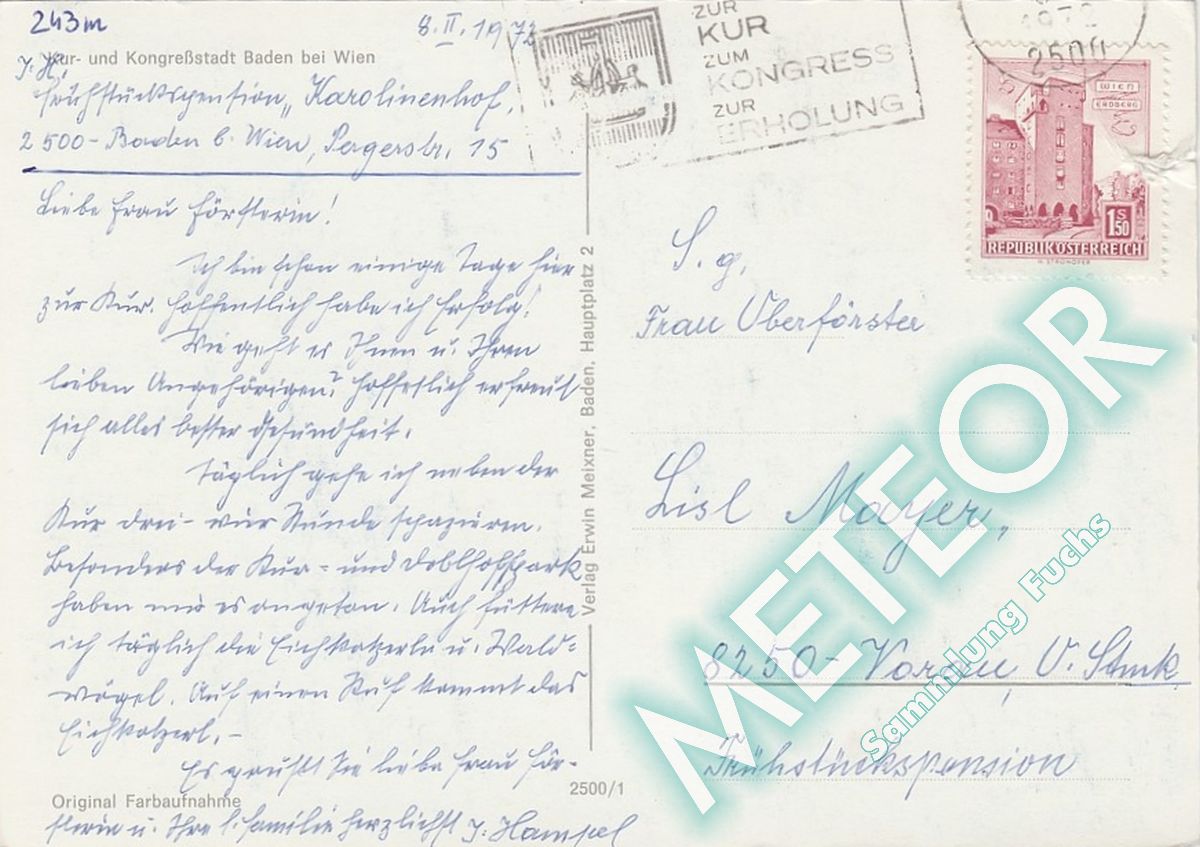 243m
8.II.1972
Kur- und Kongreßstadt Baden bei Wien
J. H.
Frühstückspension „Karolinenhof,
2500-Baden b. Wien, Pergerstr. 15
Liebe Frau Försterin!
Ich bin schon einige Tage hier
zur Kur. Hoffentlich habe ich Erfolg!
Wie geht es Ihnen u. Ihren
lieben Angehörigen? Hoffentlich erfreut
sich alles bester Gesundheit.
Täglich gehe ich neben der
Kur drei- vier Stunde spazieren.
Besonders der Kur- und Doblhoffpark
haben mir es angetan. Auch füttere
ich täglich die Eichkatzerln u. Wald=
vögel. Auf einen Ruf kommt das
Eichkatzerl.-
Es grüßt Sie liebe Frau För-
sterin u. Ihre l. Familie herzlichst J. Hampel
Original Farbaufnahme
Verlag Erwin Meixner, Baden, Hauptplatz 2
2500/1
ZUR
KUR
ZUM
KONGRESS
ZUR
ERHOLUNG
1972
2500
WIEN
ERDBERG
1 S 50
REPUBLIK ÖSTERREICH
H. STROHOFER
S. g.
Frau Oberförster
Lisl Mayer,
8250- Vorau, O. Stmk
Frühstückspension
METEOR
Sammlung Fuchs